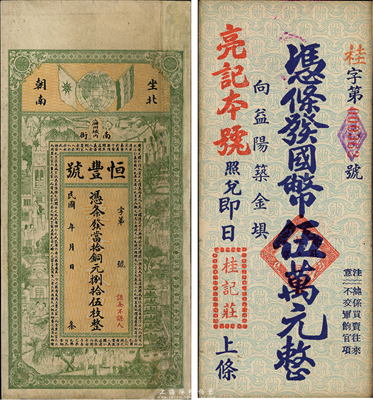 坐北
朝南
南街
恒豐號
字第 號
憑条發當拾銅元捌拾伍枚整
認条不認人
民國 年 月 日 条
桂字第 號
憑條發國幣伍萬元整
注意 總係買賣往來
不交軍餉官項
向益陽築金垻
亮記本號照兌即日
桂記莊
上條